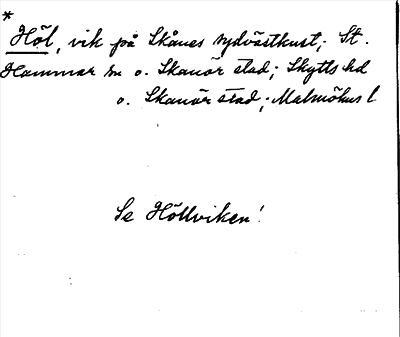 *
Höl, vik på Skånes sydvästkust; St.
Hammar sn o. Skanör stad; Skytts hd
o. Skanör stad; Malmöhus l
Se Höllviken!